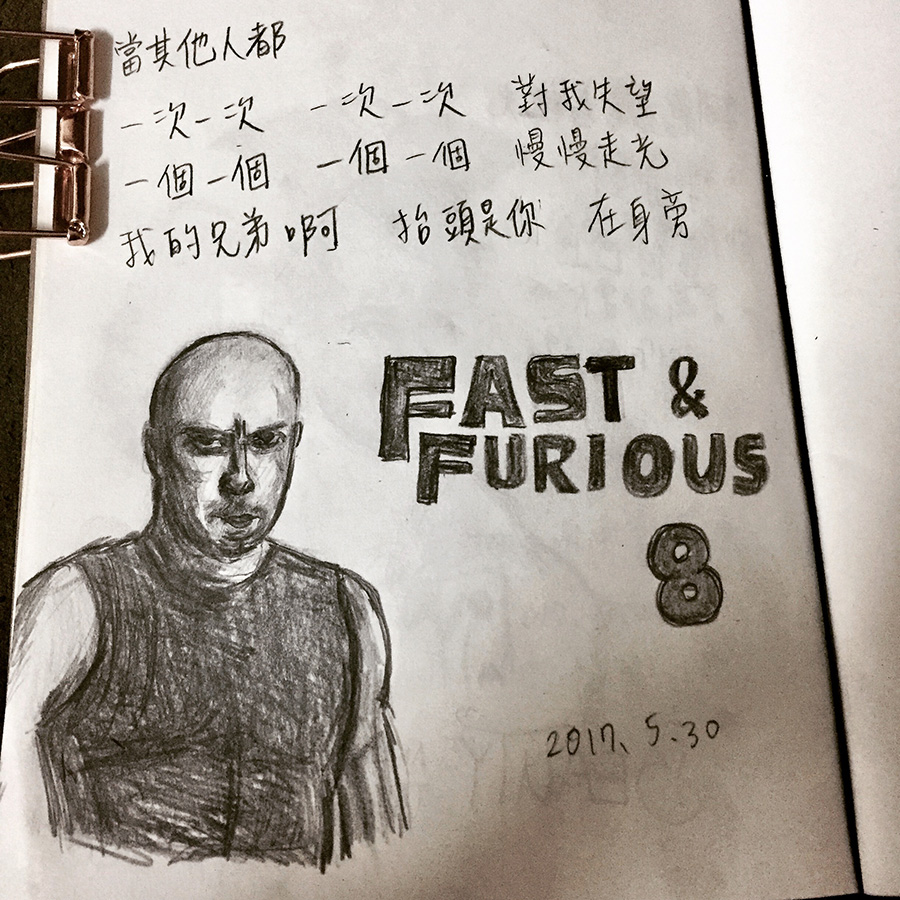 當其他人都
一次一次 一次一次 對我失望
一個一個 一個一個 慢慢走光
我的兄弟啊 抬頭是你 在身旁
FAST &
FURIOUS
8
2017.5.30